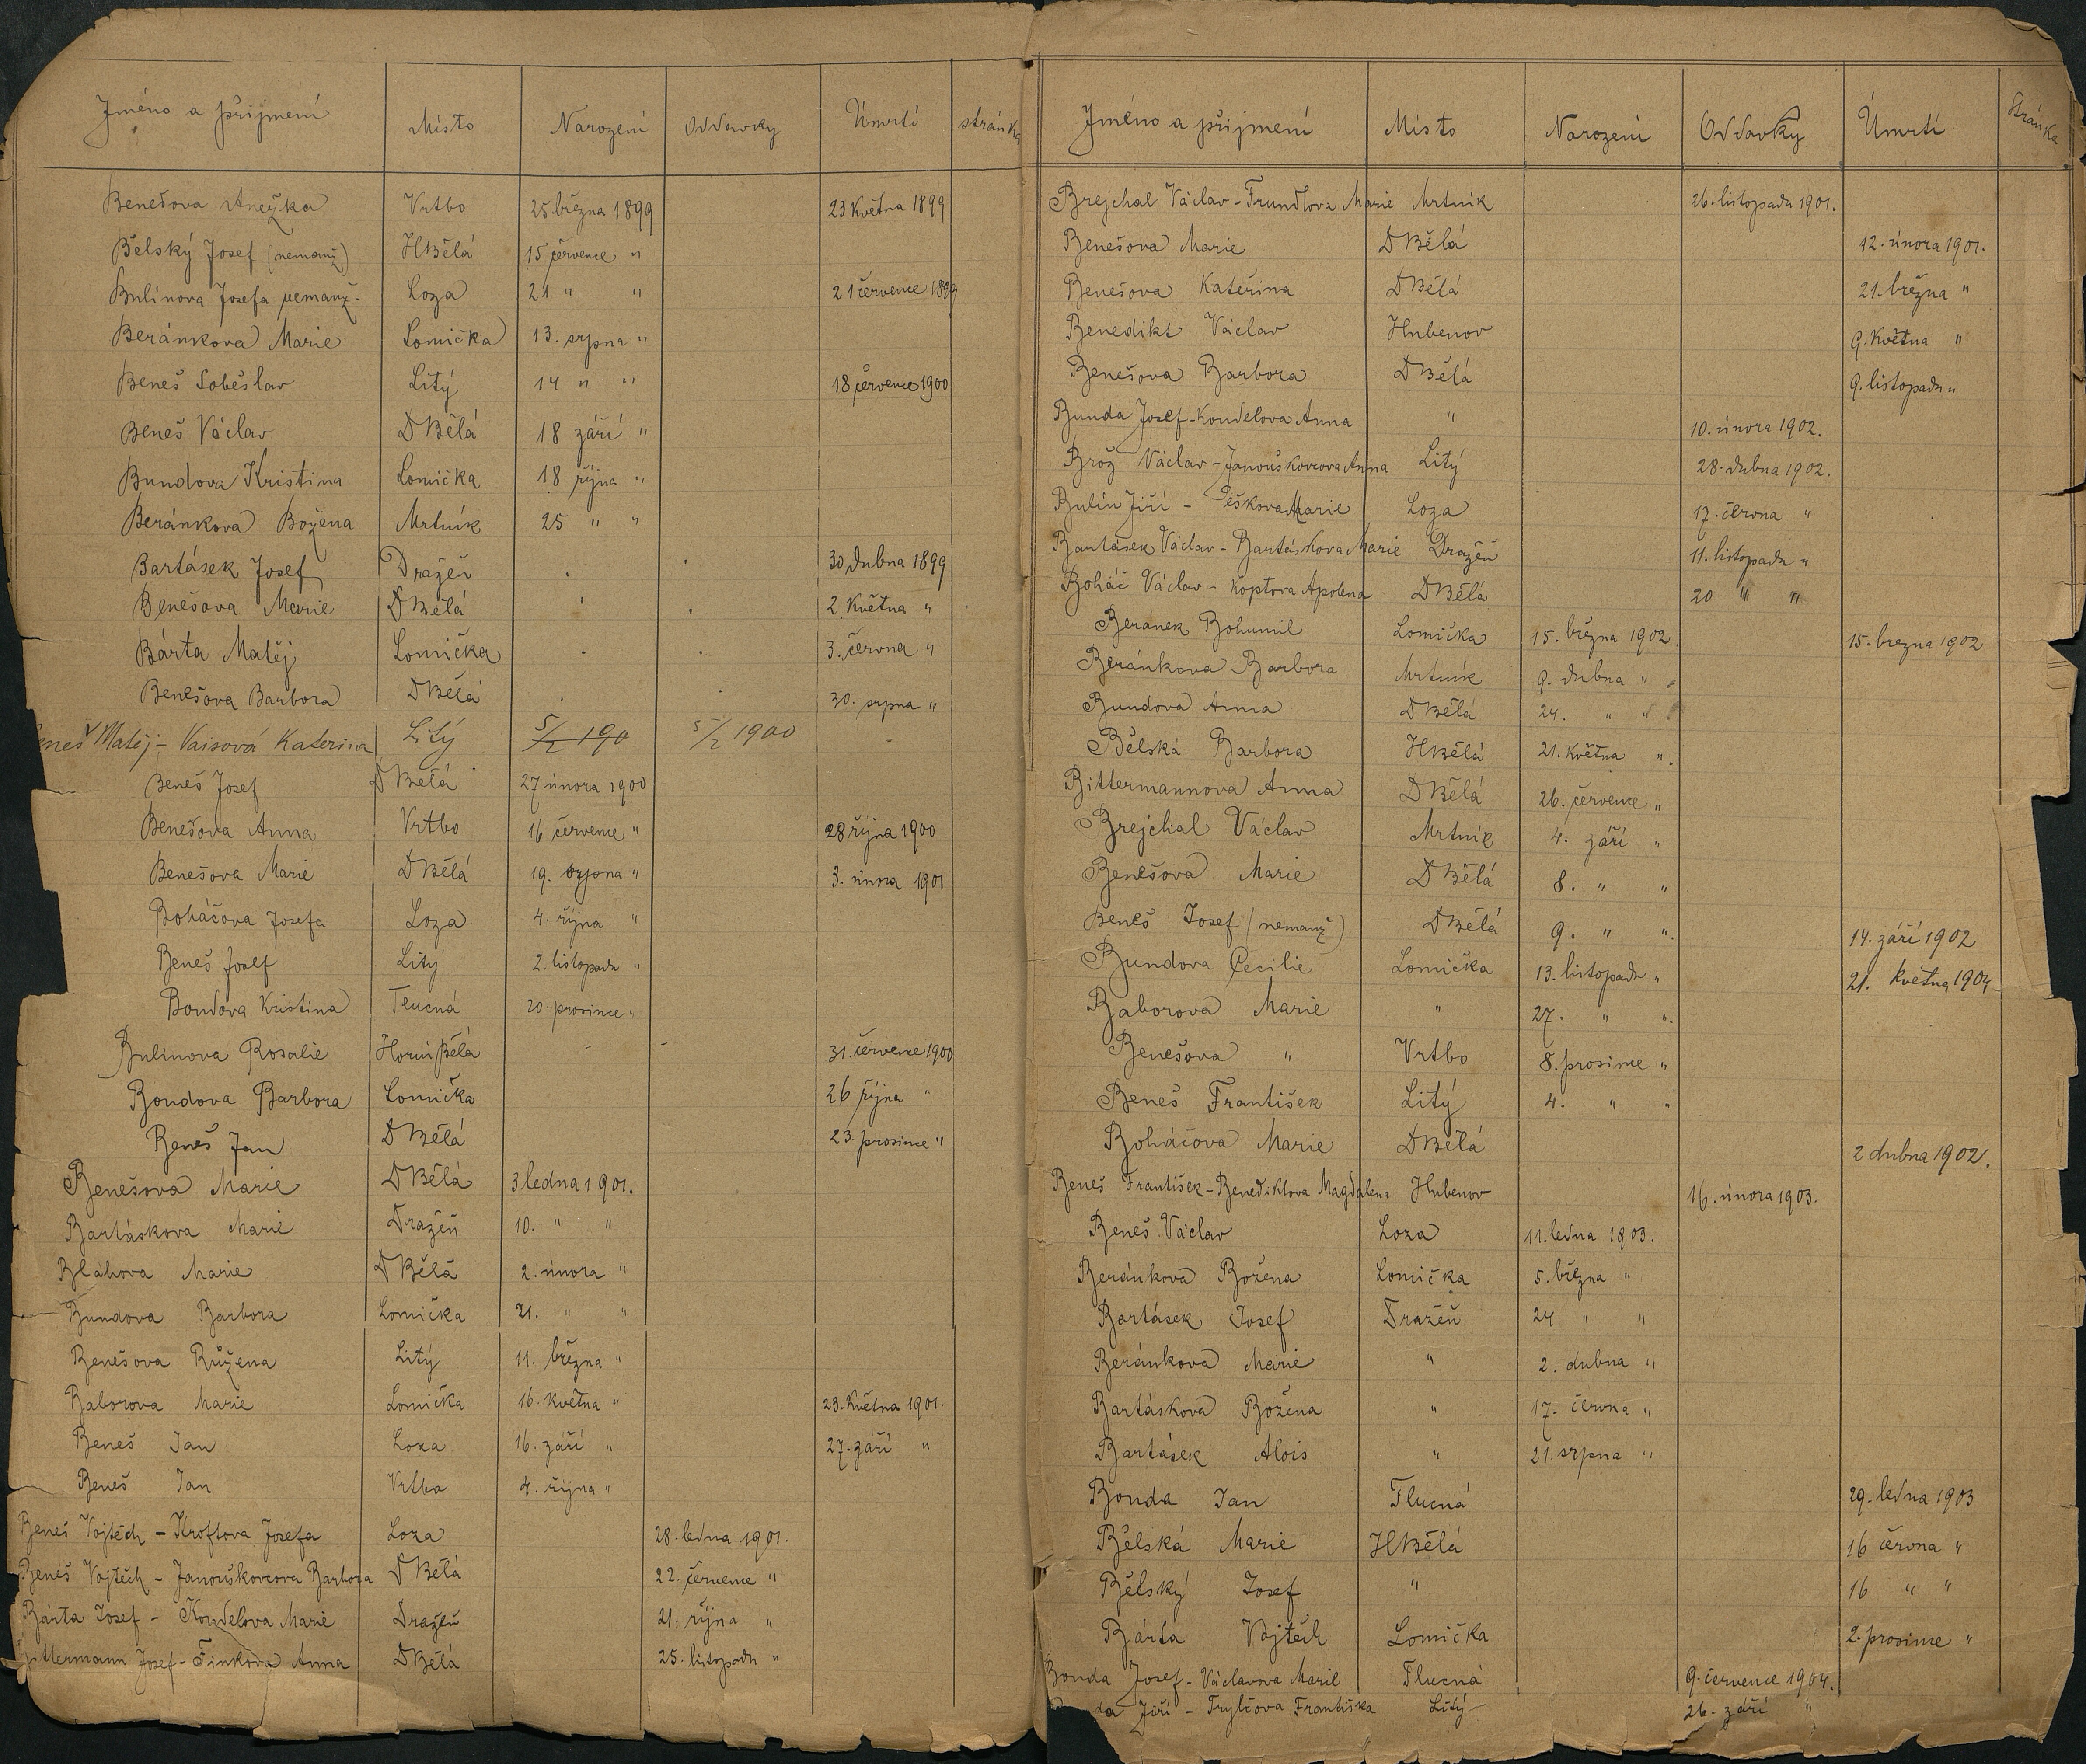 Jméno a přijmení Místo Narození Oddavky Úmrtí stránka
Benešova Anežka Vrtbo 25. března 1899 23 Května 1899
Bělský Josef (nemanž) HBělá 15 července "
Bulínova Josefa nemanž. Loza 21 " " 21 července 1899
Beránkova Marie Lomička 13. srpna "
Beneš Soběslav Litý 14 " " 18 července 1900
Beneš Václav DBělá 18 září "
Bundova Kristina Lomička 18 října "
Beránkova Božena Mrtník 25 " "
Bartásek Josef Dražeň 30 dubna 1899
Benešova Marie DBělá 2. Května "
Bárta Matěj Lomička 3. června "
Benešova Barbora DBělá 30. srpna "
Beneš Matěj - Vaisová Kateřina Litý 5/2 190 5/2 1900
Beneš Josef DBělá 27 února 1900
Benešova Anna Vrtbo 16 července " 28 října 1900
Benešova Marie DBělá 19. srpna " 3. února 1901
Boháčova Josefa Loza 4. října "
Beneš Josef Litý 2. listopadu "
Bondova Kristina Tlucná 20. prosince "
Bulinova Rosalie Horní Bělá 31. července 1900
Bondova Barbora Lomička 26 října "
Beneš Jan DBělá 23. prosince "
Benešova Marie DBělá 3 ledna 1901.
Bartáskova Marie Dražeň 10. " "
Bláhova Marie DBělá 2. února "
Bundova Barbora Lomička 21. " "
Benešova Růžena Litý 11. března "
Baborova Marie Lomička 16. května " 23. Května 1901.
Beneš Jan Loza 16. září " 27. září "
Beneš Jan Vrtbo 4. října "
Beneš Vojtěch - Kroftova Josefa Loza 28. ledna 1901.
Beneš Vojtěch - Janouškovcova Barbora DBělá 22. července "
Bárta Josef - Koudelova Marie Dražeň 21. října "
Bittermann Josef - Finkova Anna DBělá 25. listopadu "
Jméno a přijmení Místo Narození Oddavky Úmrtí Stránka
Brejchal Václav - Trundlova Marie Mrtník 26. listopadu 1901.
Benešova Marie DBělá 12. února 1901.
Benešova Kateřina DBělá 21. března "
Benedikt Václav Hubenov 9. Května "
Benešova Barbora DBělá 9. listopadu "
Bunda Josef - Koudelova Anna " 10. února 1902.
Brož Václav - Janouškovcova Anna Litý 28. dubna 1902.
Bulín Jiří - Peškova Marie Loza 17. června "
Bartásek Václav - Bartáskova Marie Dražeň 11. listopadu "
Boháč Václav - Koptova Apolena DBělá 20 " "
Beránek Bohumil Lomička 15. března 1902 15. března 1902
Beránkova Barbora Mrtník 9. dubna "
Bundova Anna DBělá 24. " "
Bělská Barbora HBělá 21. května "
Bittermannova Anna DBělá 26. července "
Brejchal Václav Mrtník 4. září "
Benešova Marie DBělá 8. " "
Beneš Josef (nemanž) DBělá 9. " " 14. září 1902
Bundova Cecilie Lomička 13. listopadu " 21. května 1904
Baborova Marie " 27. " "
Benešova " Vrtbo 8. prosince "
Beneš František Litý 4. " "
Boháčova Marie DBělá 2 dubna 1902.
Beneš František - Benediktova Magdalena Hubenov 16. února 1903.
Beneš Václav Loza 11. ledna 1903.
Beránkova Božena Lomička 5. března "
Bartásek Josef Dražeň 24 " "
Beránkova Marie " 2. dubna "
Bartáskova Božena " 17. června "
Bartásek Alois " 21. srpna "
Bonda Jan Tlucná 29. ledna 1903
Bělská Marie HBělá 16 června "
Bělský Josef " 16 " "
Bárta Vojtěch Lomička 2. prosince "
Bonda Josef - Václavova Marie Tlucná 9. července 1904.
da Jiří - Trylčova Františka Litý 26. září "